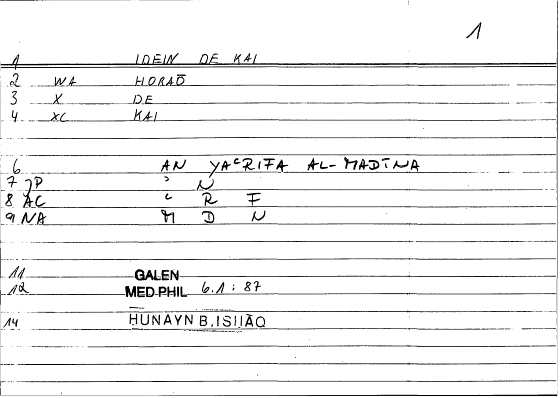 1
1 IDEIN DE KAI
2 WA HORAŌ
3 X DE
4 XC KAI
6 AN YAʿRIFA AL-MADĪNA
7 JP ʾ N
8 AC ʿ R F
9 NA M D N
11 GALEN
12 MED.PHIL 6.1 : 87
14 HUNAYN B.ISHĀQ